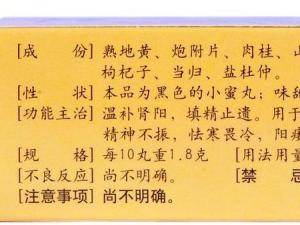 [成 份] 熟地黄、炮附片、肉桂、山
枸杞子、当归、盐杜仲。
[性 状] 本品为黑色的小蜜丸；味甜
[功能主治] 温补肾阳，填精止遗。用于
精神不振，怯寒畏冷，阳痿
[规 格] 每10丸重1.8克 [用法用量
[不良反应] 尚不明确。 [禁 忌
[注意事项] 尚不明确。